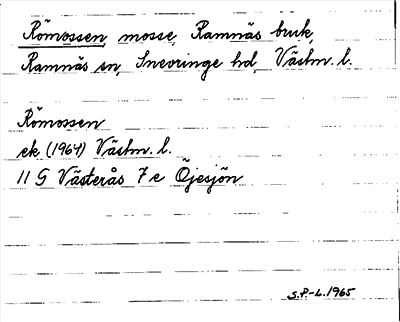 Römossen, mosse, Ramnäs bruk,
Ramnäs sn, Snevringe hd, Västm. l.
Römossen
ek (1964) Västm. l.
11 G Västerås 7 e Öjesjön
S.P.-L. 1965